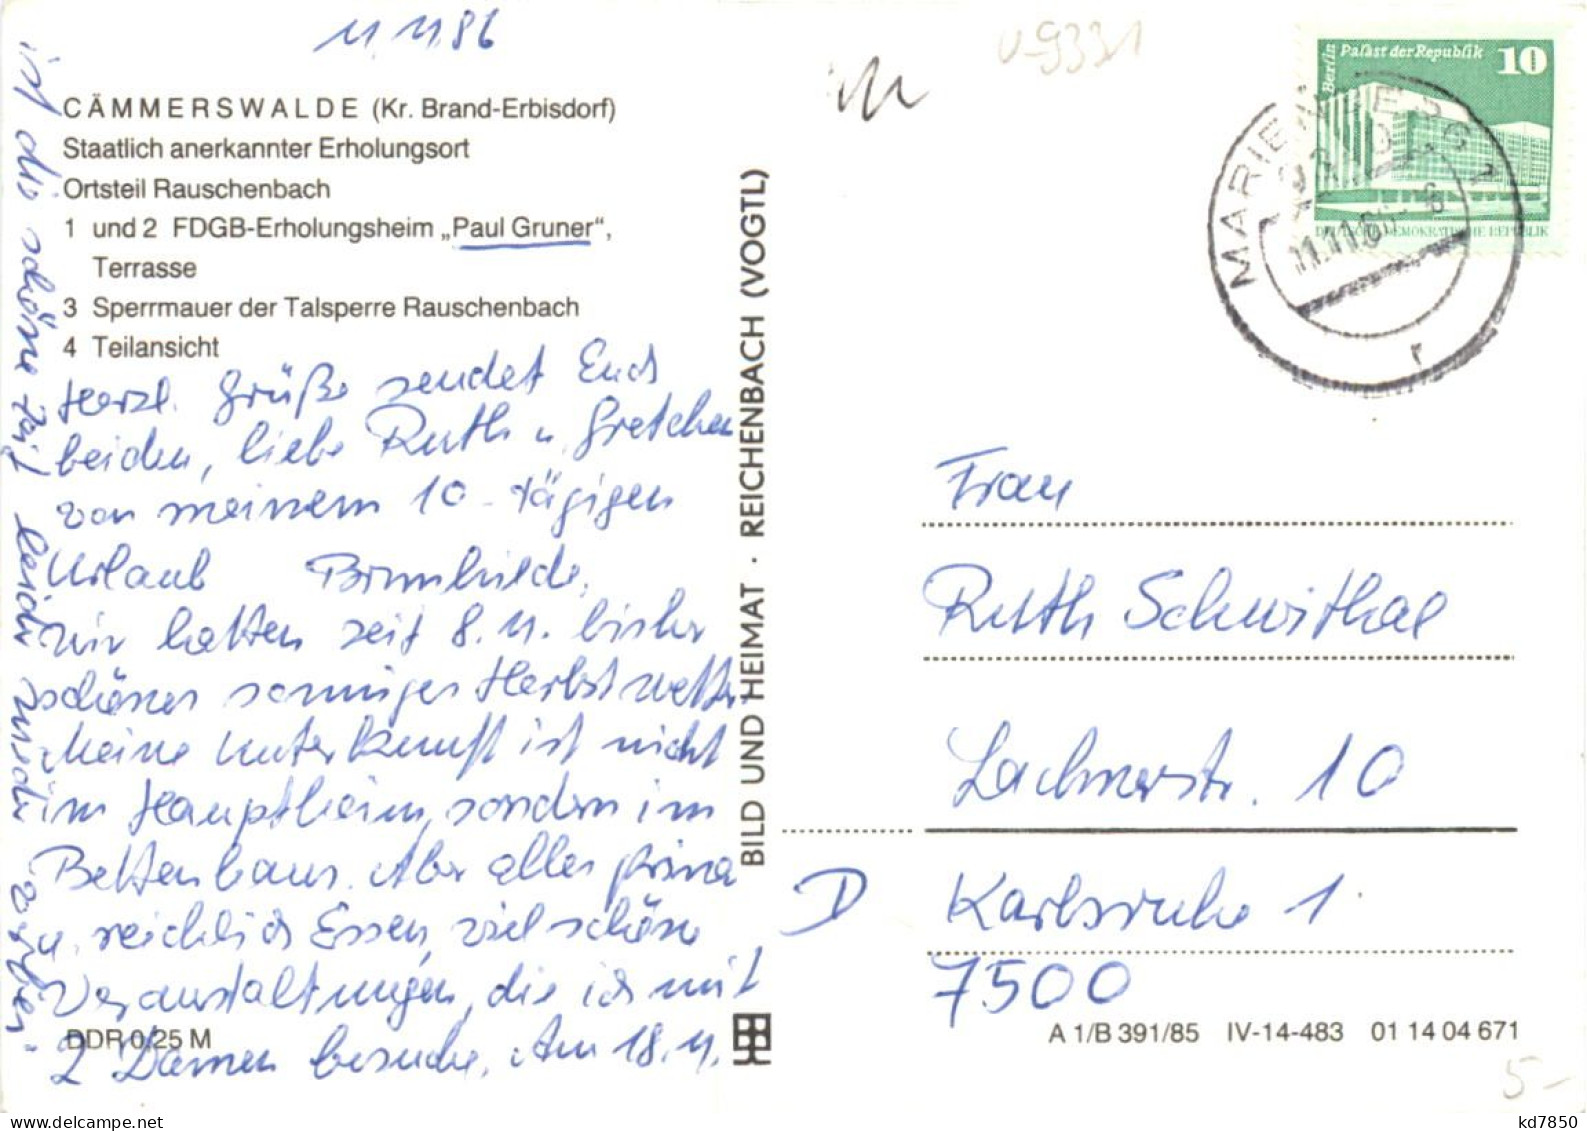 11.11.86
U-9331
CÄMMERSWALDE (Kr. Brand-Erbisdorf)
Staatlich anerkannter Erholungsort
Ortsteil Rauschenbach
1 und 2 FDGB-Erholungsheim „Paul Gruner“,
Terrasse
3 Sperrmauer der Talsperre Rauschenbach
4 Teilansicht
Herzl. Grüße sendet Euch
beiden, liebe Ruth u. Gretchen
von meinem 10-tägigen
Urlaub Brunhilde.
Wir hatten seit 8.11. bisher
schönes sonniges Herbstwetter.
Meine Unterkunft ist nicht
im Hauptheim, sondern im
Bettenhaus. Aber alles prima
u. reichlich Essen, viel schöne
Veranstaltungen, die ich mit
2 Damen besuche. Am 18.11.
ist die schöne Zeit leider wieder vorbei.
DDR 0,25 M
BILD UND HEIMAT · REICHENBACH (VOGTL)
Berlin
Palast der Republik
10
DEUTSCHE DEMOKRATISCHE REPUBLIK
MARIENBERG 1
11.11.86
r
Frau
Ruth Schwithal
Lachnerstr. 10
D Karlsruhe 1
7500
A 1/B 391/85 IV-14-483 01 14 04 671
5-
kd7850